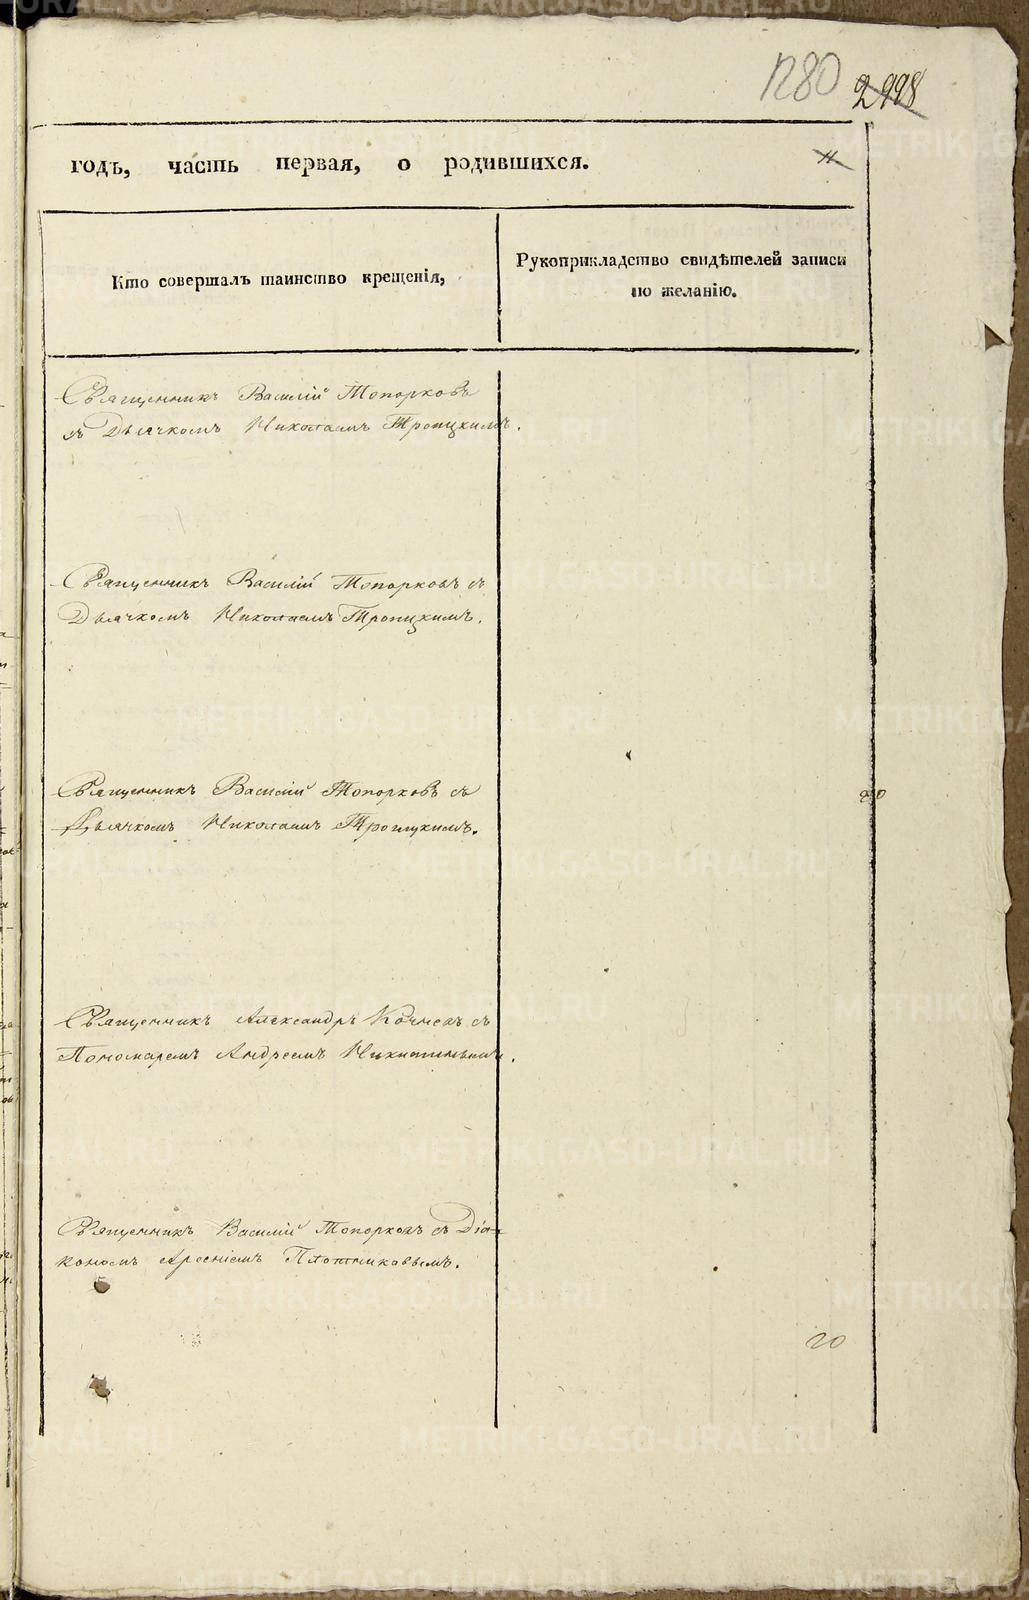 1280 2998
годъ, часть первая, о родившихся.
11
Кто совершалъ таинство крещенія,
Рукоприкладство свидѣтелей записи
по желанію.
Священникъ Василій Топорковъ
съ Дьячкомъ Николаемъ Троицкимъ.
Священникъ Василій Топорковъ съ
Дьячкомъ Николаемъ Троицкимъ.
Священникъ Василій Топорковъ съ
Дьячкомъ Николаемъ Троицкимъ.
Священникъ Александръ Кочневъ съ
Пономаремъ Андреемъ Никитинымъ.
Священникъ Василій Топорковъ съ Діа-
кономъ Арсеніемъ Плотниковымъ.
20
METRIKI.GASO-URAL.RU